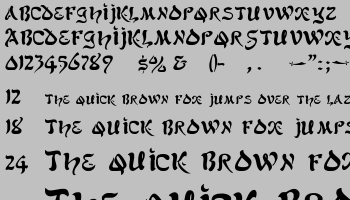 ABCDEFGHIJKLMNOPQRSTUVWXYZ
ABCDEFGHIJKLMNOPQRSTUVWXYZ
0123456789 $% & () , . ~"";;~
12 THE QUICK BROWN FOX JUMPS OVER THE LAZ
18 THE QUICK BROWN FOX JUMPS
24 THE QUICK BROWN FOX
THE QUICK BRO